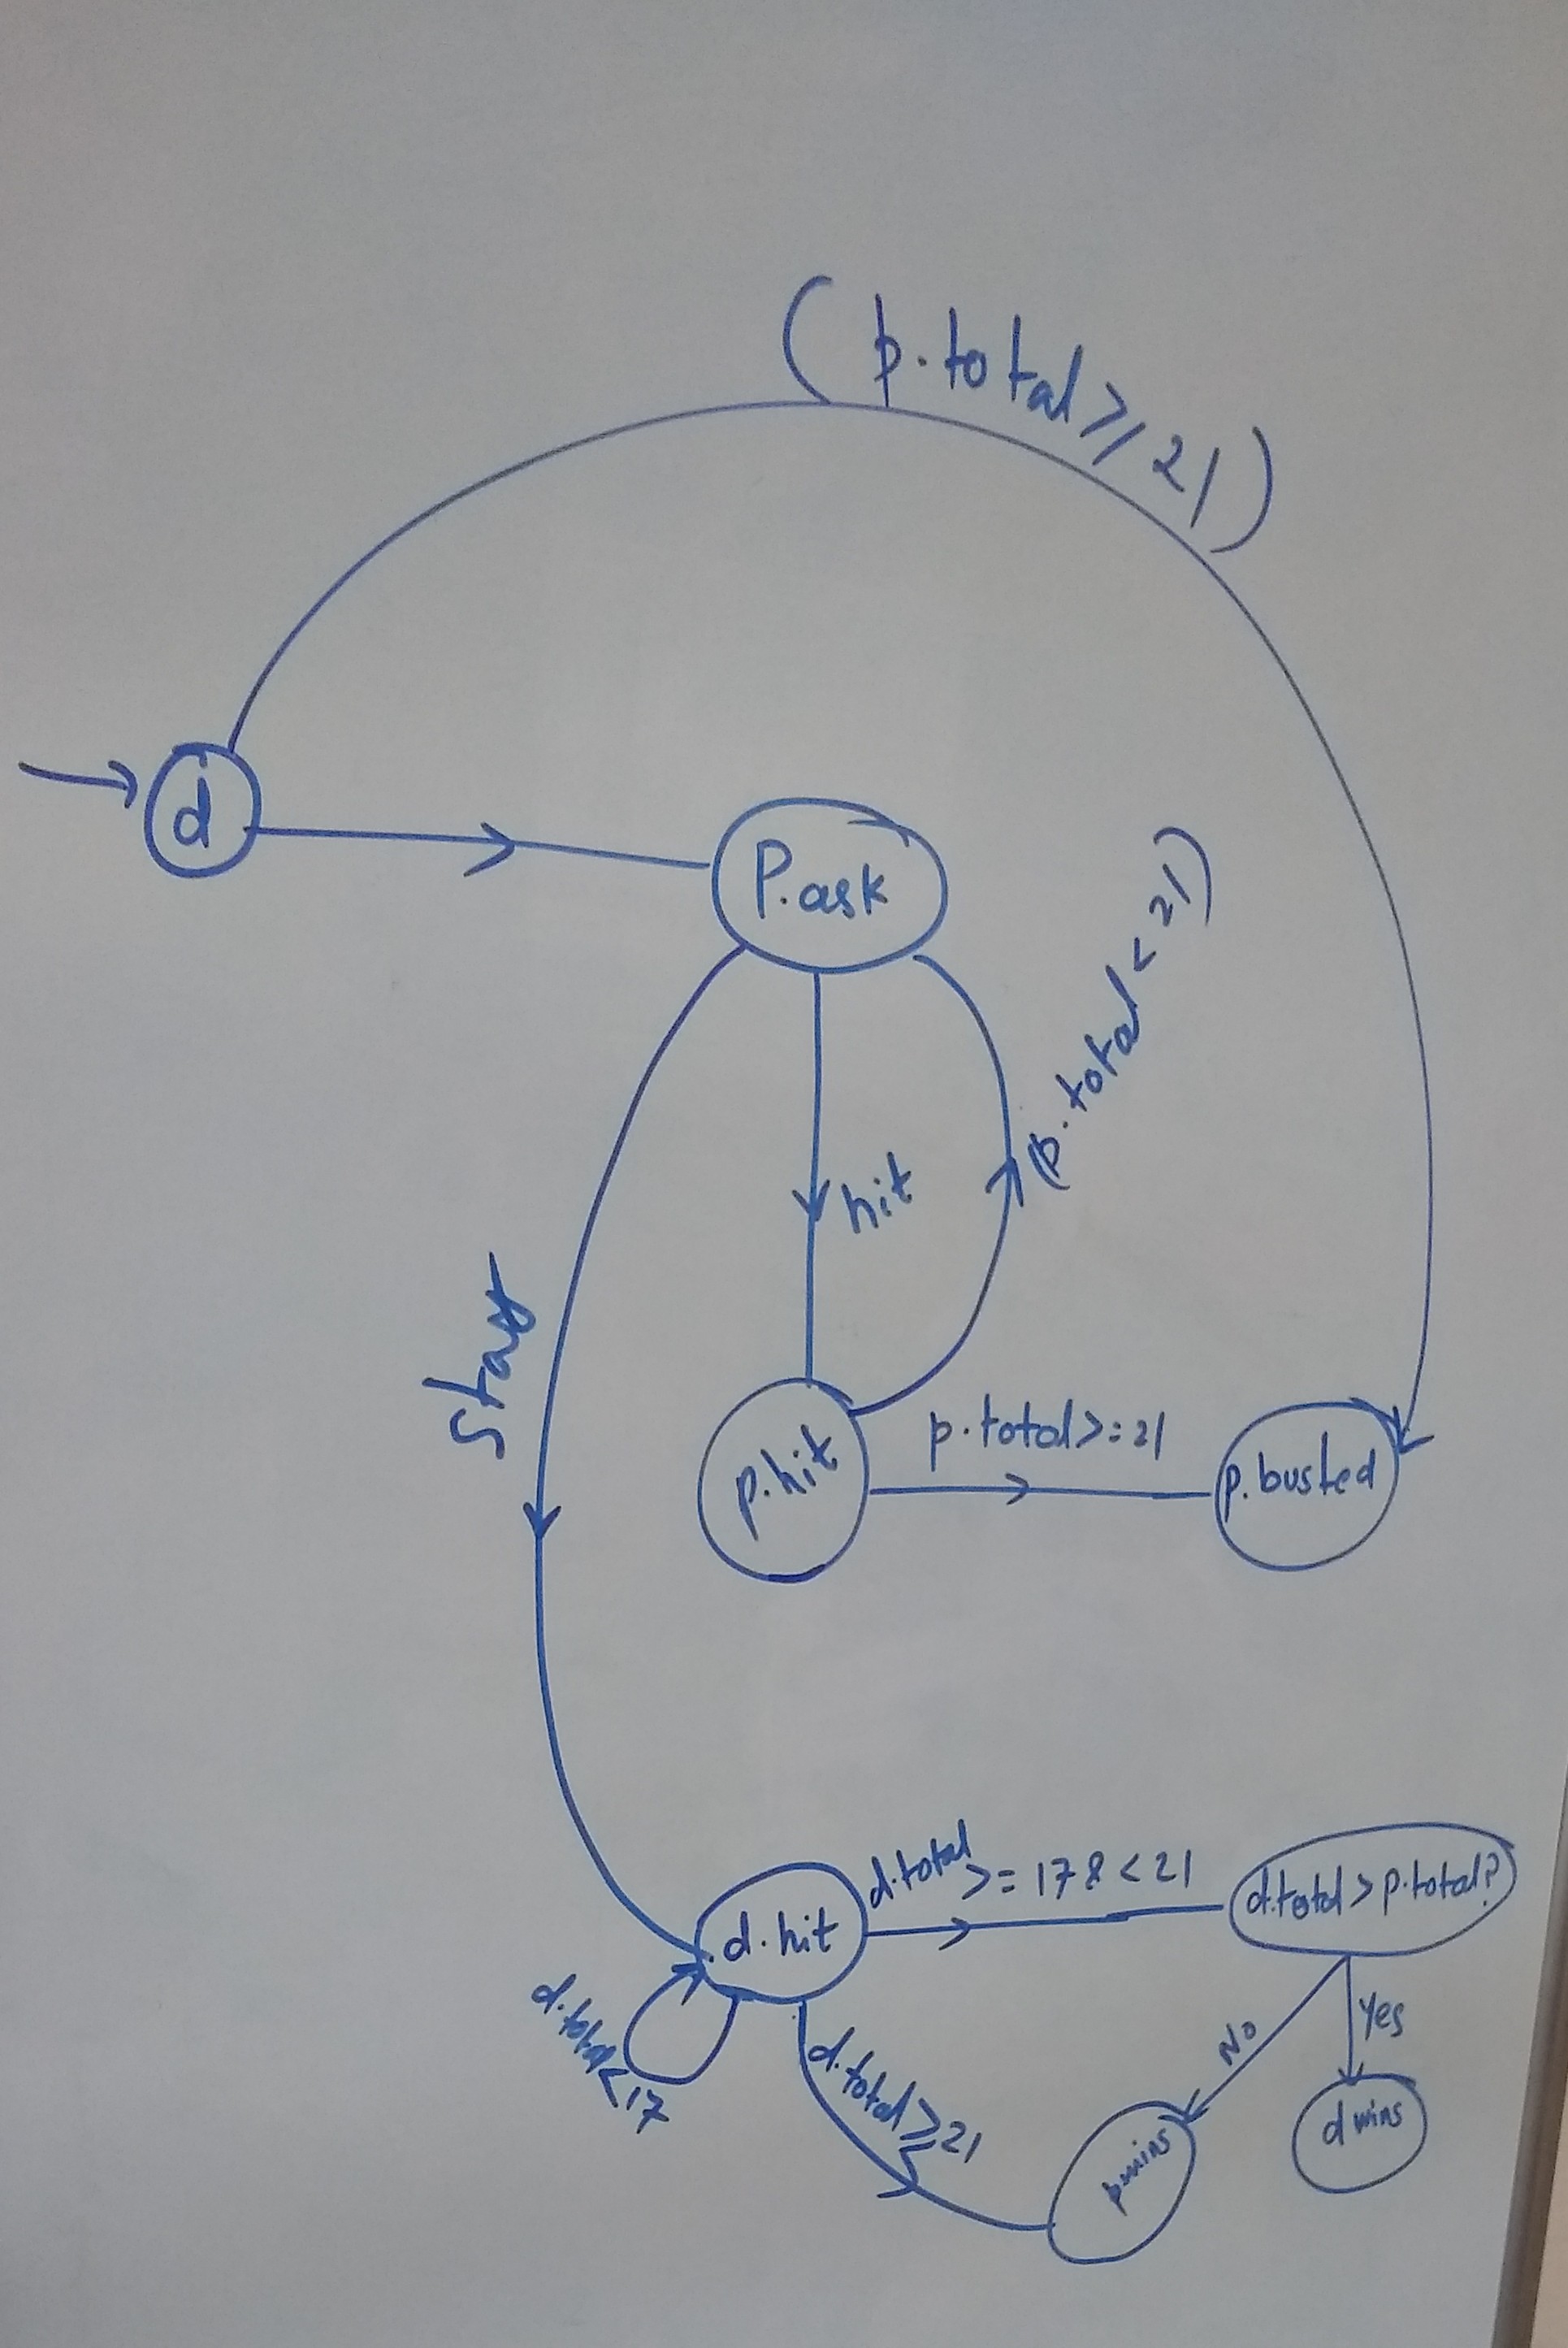 (p.total ⩾ 21)
d
P.ask
(p.total < 21)
hit
Stay
p.hit
p.total >= 21
p.busted
d.total >= 17 & < 21
d.total > p.total?
d.hit
d.total < 17
d.total ⩾ 21
No
Yes
p wins
d wins